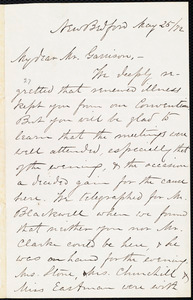 New Bedford May 25/72
My dear Mr. Garrison,—
We deeply re-
gretted that renewed illness
kept you from our Convention
But you will be glad to
learn that the meetings were
well attended, especially that
of the evening, & the occasion
a decided gain for the cause
here. We telegraphed for Mr.
Blackwell when we found
that neither you nor Mr.
Clarke could be here, & he
was on hand for the evening.
Mrs. Stone, & Mrs. Churchill &
Miss Eastman were both